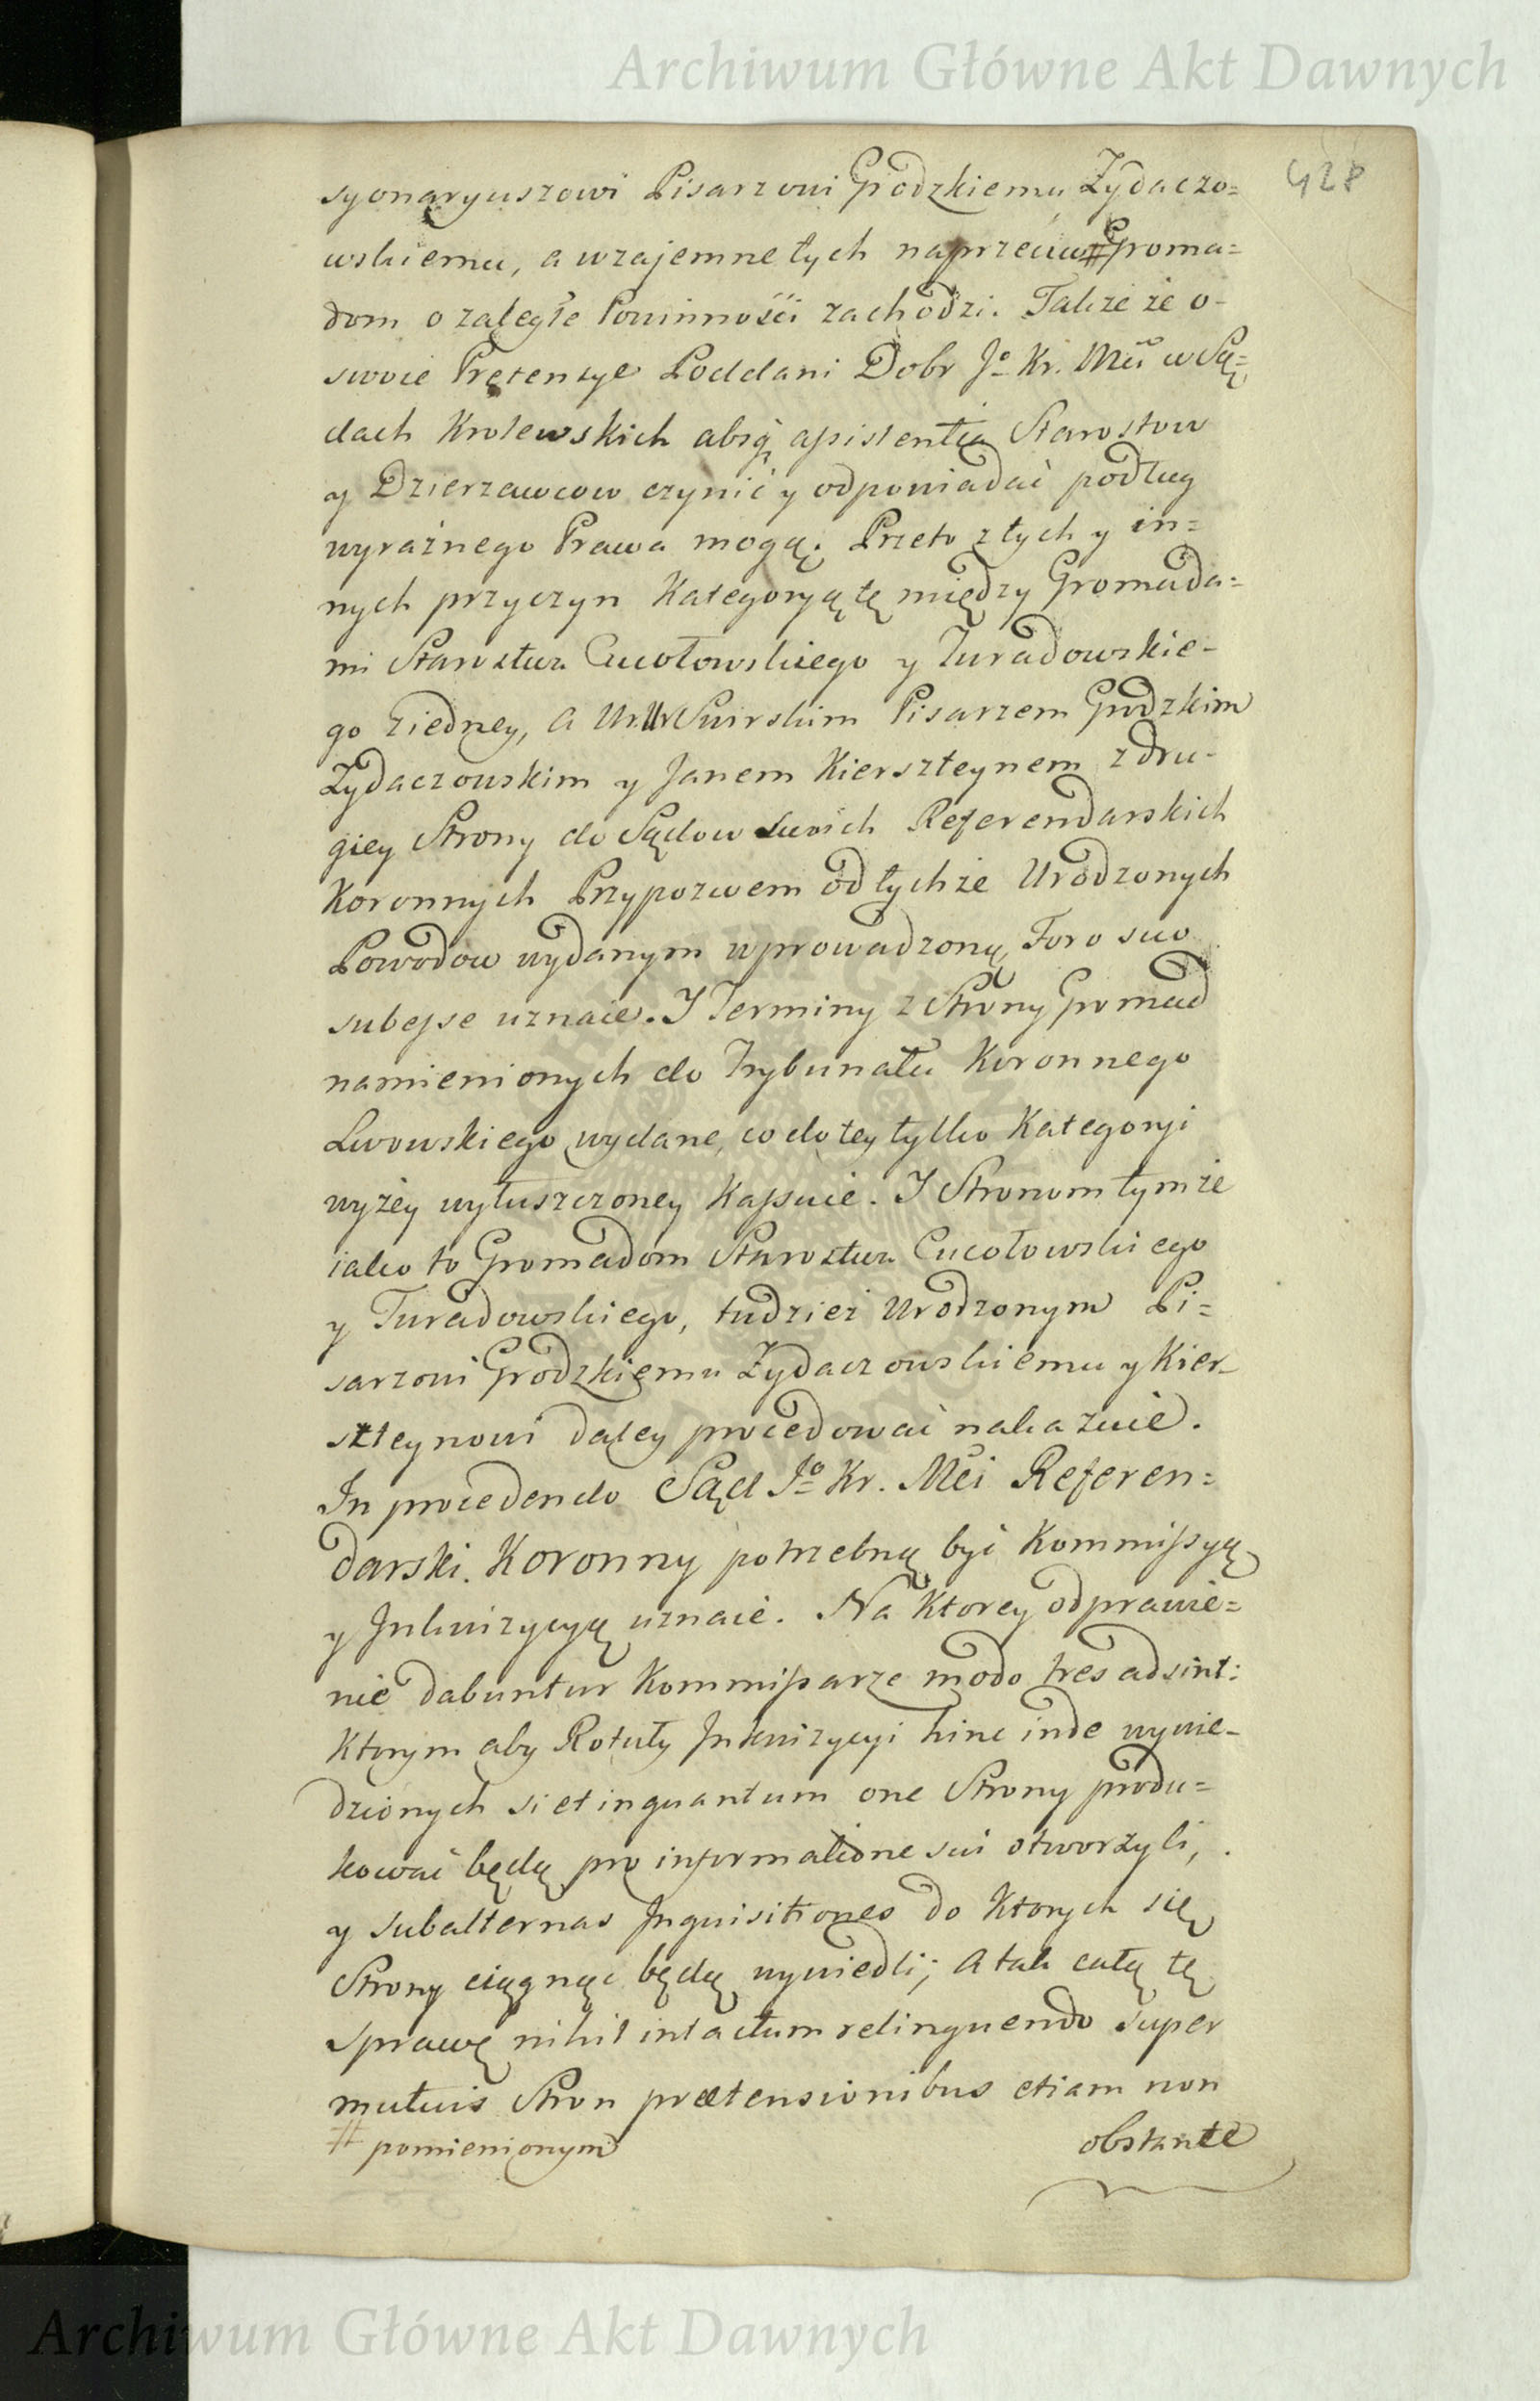 Archiwum Główne Akt Dawnych
428
syonaryuszowi Pisarzowi Grodzkiemu Zydaczo=
wskiemu, a wzajemne tych naprzeciw # Groma=
dom o zaległe Powinności zachodzi. Takze że o-
swoie Prętensye Poddani Dobr Jo Kr. Mci w Są=
dach Krolewskich absq assistentia Starostow
y Dzierzawcow czynić y odpowiadać podług
wyraźnego Prawa mogą. Przeto z tych y in=
nych przyczyn Kategoryą tę między Gromada=
mi Starostwa Cucołowskiego y Turadowskie-
go z iedney, a Ur. Swirskim Pisarzem Grodzkim
Zydaczowskim y Janem Kierszteynem z dru-
giey Strony do Sądow swoich Referendarskich
Koronnych Przypozwem od tychże Urodzonych
Powodow wydanym wprowadzoną, Foro suo
subesse uznaie. I Terminy z Strony Gromad
namienionych do Trybunału Koronnego
Lwowskiego wydane, co do tey tylko Kategoryi
wyżey wyłuszczoney Kassuie. I Stronom tymże
iako to Gromadom Starostwa Cucołowskiego
y Turadowskiego, tudzież Urodzonym Pi=
sarzowi Grodzkiemu Zydaczowskiemu y Kier-
szteynowi daley procedować nakazuie.
In procedendo Sąd Jo Kr. Mci Referen=
darski Koronny potrzebną być Kommissyą
y Inkwizycyą uznaie. Na ktorey odprawie=
nie dabuntur Kommissarze modo tres adsint:
Ktorym aby Rotuły Inkwizycyi hinc inde wywie-
dzionych si et inquantum one Strony produ=
kować będą pro informatione sui otworzyli,
y subalternas Inquisitiones do ktorych się
Strony ciągnąć będą wywiedli; a tak całą tę
sprawę nihil intactum relinquendo super
mutuis Stron praetensionibus etiam non
# pomienionym
obstante
Archiwum Główne Akt Dawnych